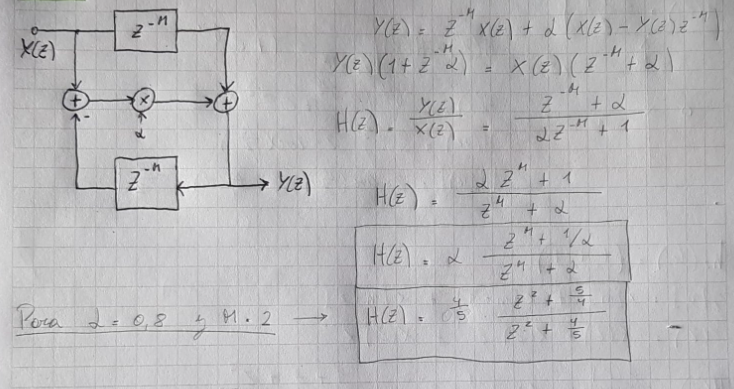 X(z)
z^-M
+
-
x
α
+
z^-M
Y(z)
Y(z) = z^-M X(z) + α (X(z) - Y(z) z^-M)
Y(z) (1 + z^-M α) = X(z) (z^-M + α)
H(z) = Y(z)/X(z) = (z^-M + α)/(α z^-M + 1)
H(z) = (α z^M + 1)/(z^M + α)
H(z) = α (z^M + 1/α)/(z^M + α)
Para α = 0,8 y M = 2 → H(z) = 4/5 (z^2 + 5/4)/(z^2 + 4/5)